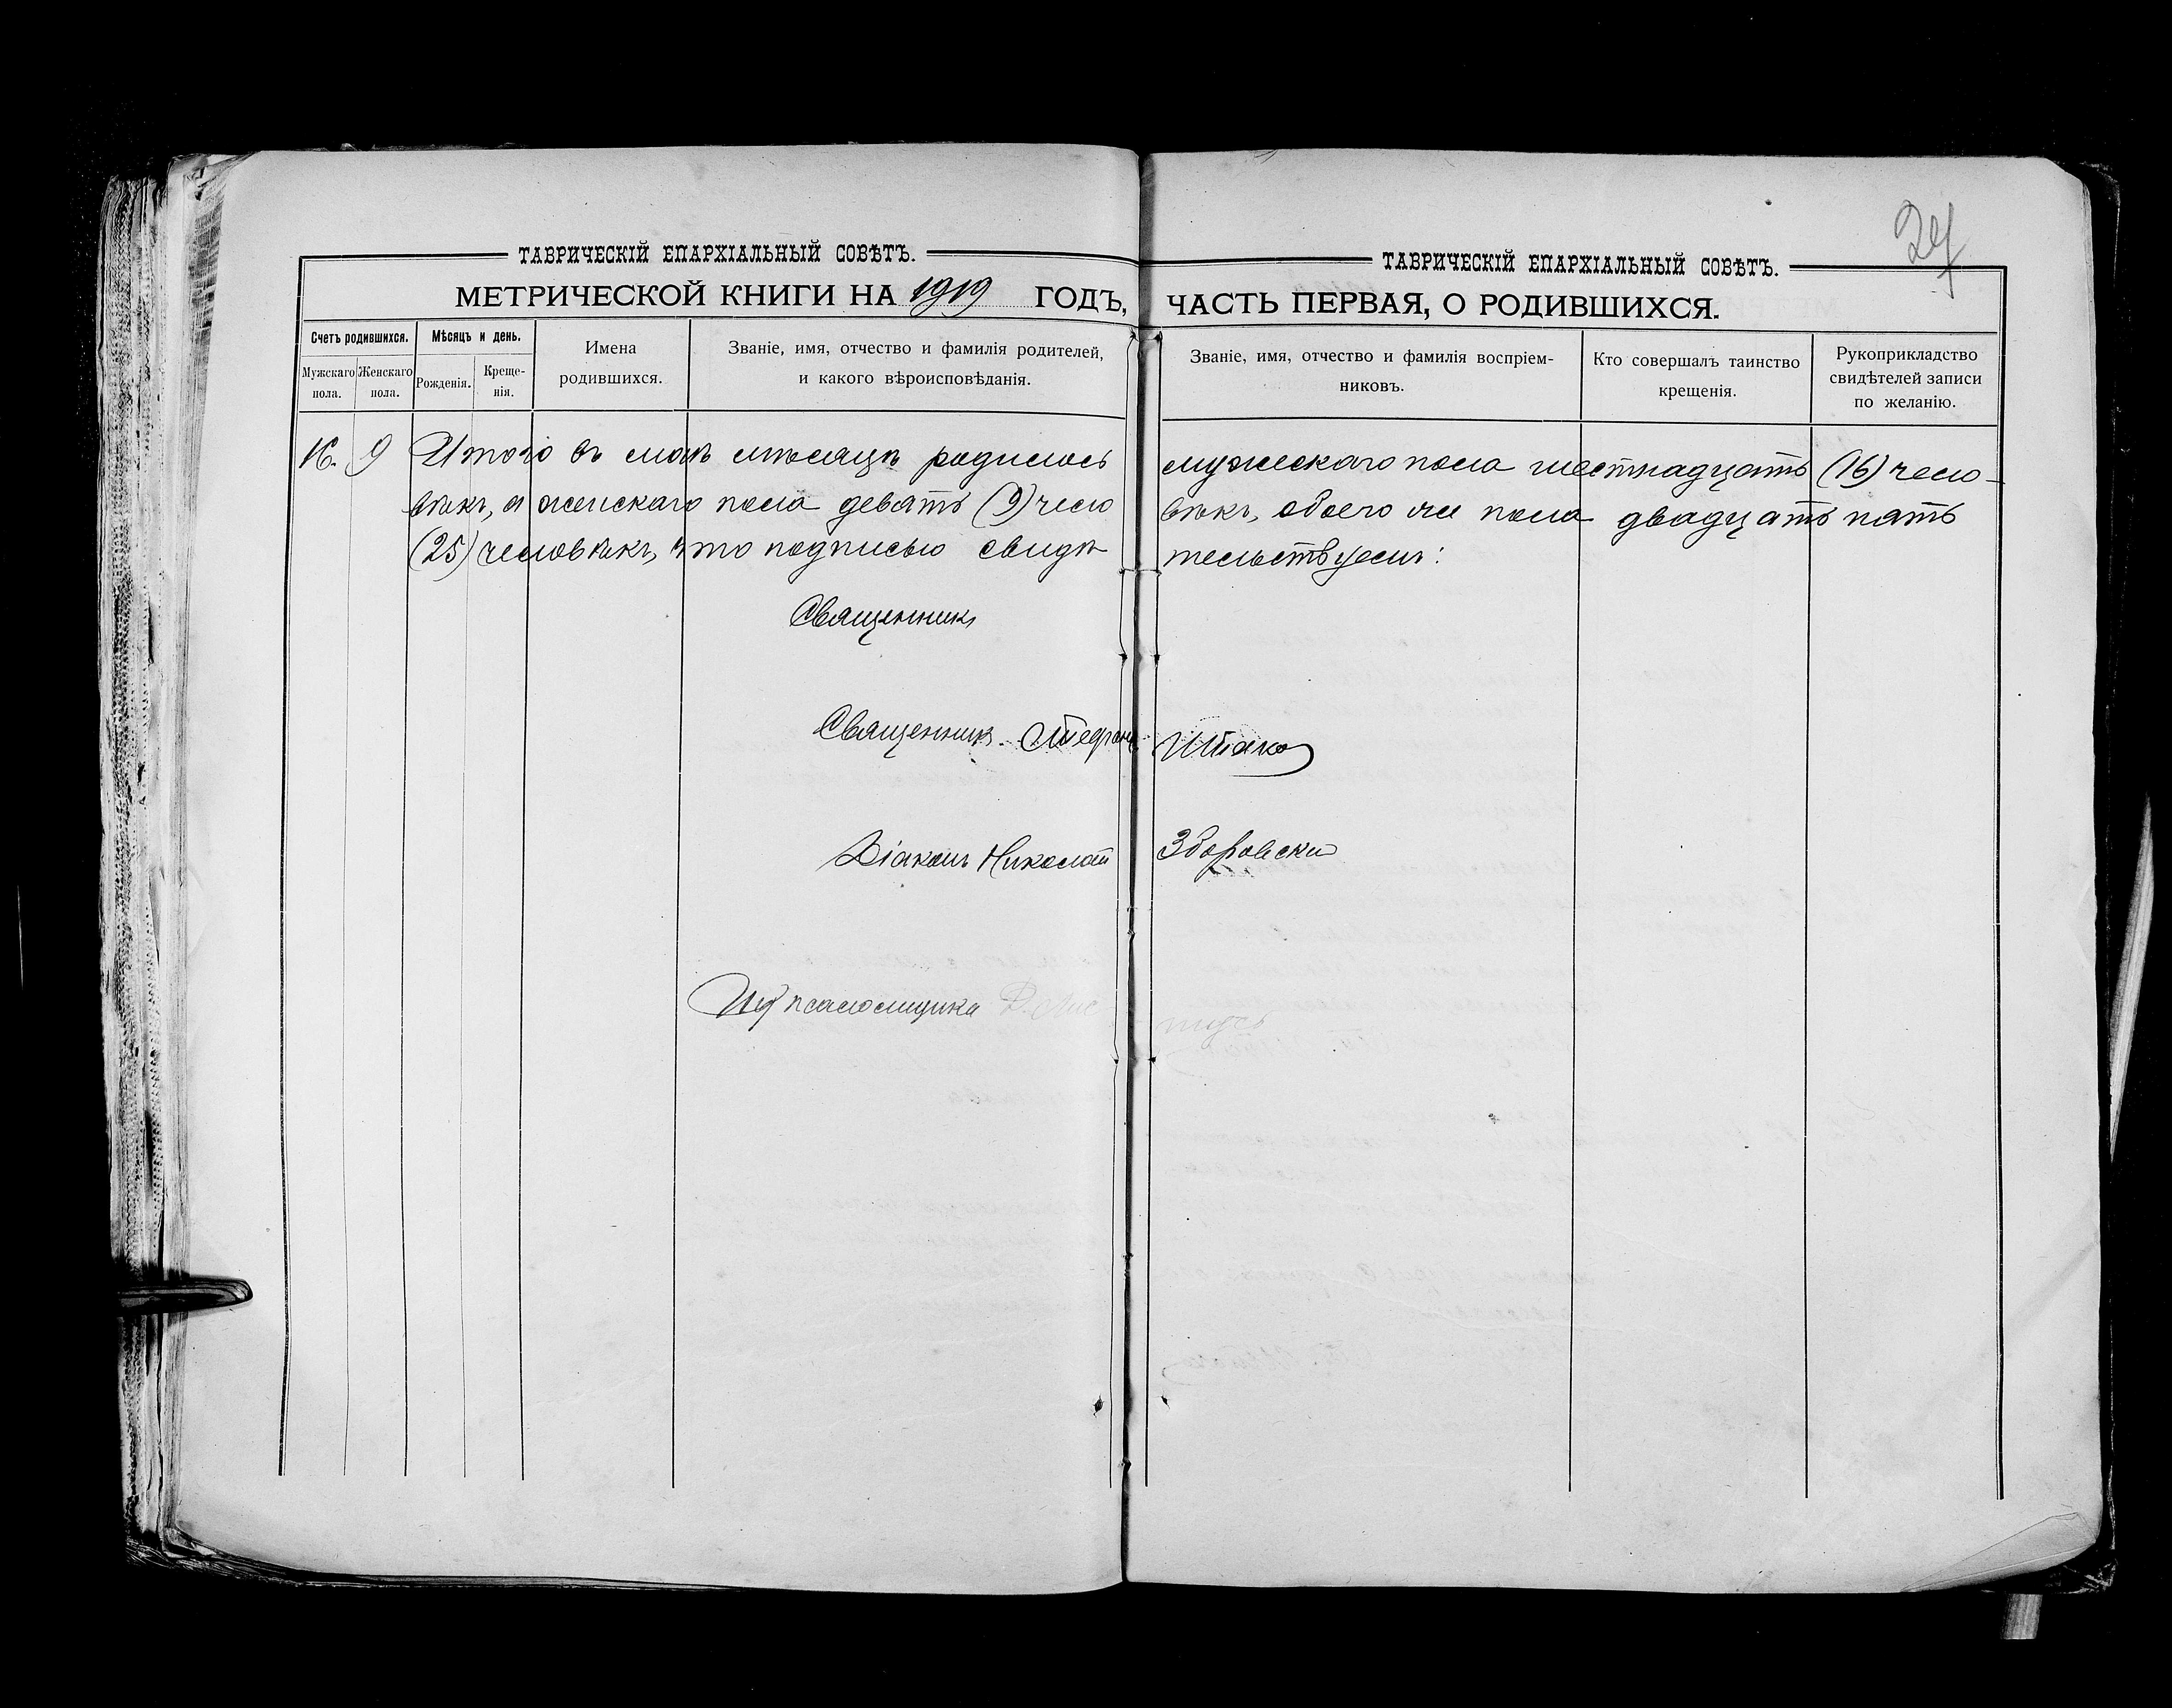 ТАВРИЧЕСКІЙ ЕПАРХІАЛЬНЫЙ СОВѢТЪ.
МЕТРИЧЕСКОЙ КНИГИ НА 1919 ГОДЪ,
Счетъ родившихся.
Мужскаго пола.
Женскаго пола.
Мѣсяцъ и день.
Рожденія.
Креще-
нія.
Имена
родившихся.
Званіе, имя, отчество и фамилія родителей,
и какого вѣроисповѣданія.
ТАВРИЧЕСКІЙ ЕПАРХІАЛЬНЫЙ СОВѢТЪ.
27
ЧАСТЬ ПЕРВАЯ, О РОДИВШИХСЯ.
Званіе, имя, отчество и фамилія воспріем-
никовъ.
Кто совершалъ таинство
крещенія.
Рукоприкладство
свидѣтелей записи
по желанію.
16. 9 Итого въ мѣсяцѣ родилось мужескаго пола шестнадцать (16) чело-
вѣкъ, а женскаго пола девять (9) чело вѣкъ, обоего же пола двадцать пять
(25) человѣкъ, что подписью свидѣ тельствуемъ:
Священникъ
Священникъ Стефанъ
Діаконъ Николай Зборовски
псаломщика